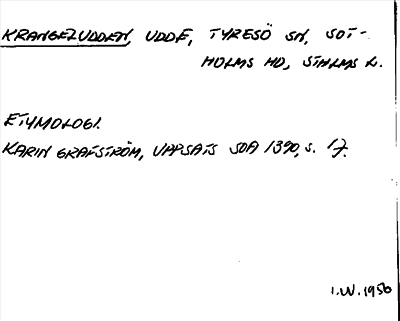 KRANGELUDDEN, UDDE, TYRESÖ SN, SOT-
HOLMS HD, STHLMS L.
ETYMOLOGI.
KARIN GRAFSTRÖM, UPPSATS SOA 1390, S. 17.
1956